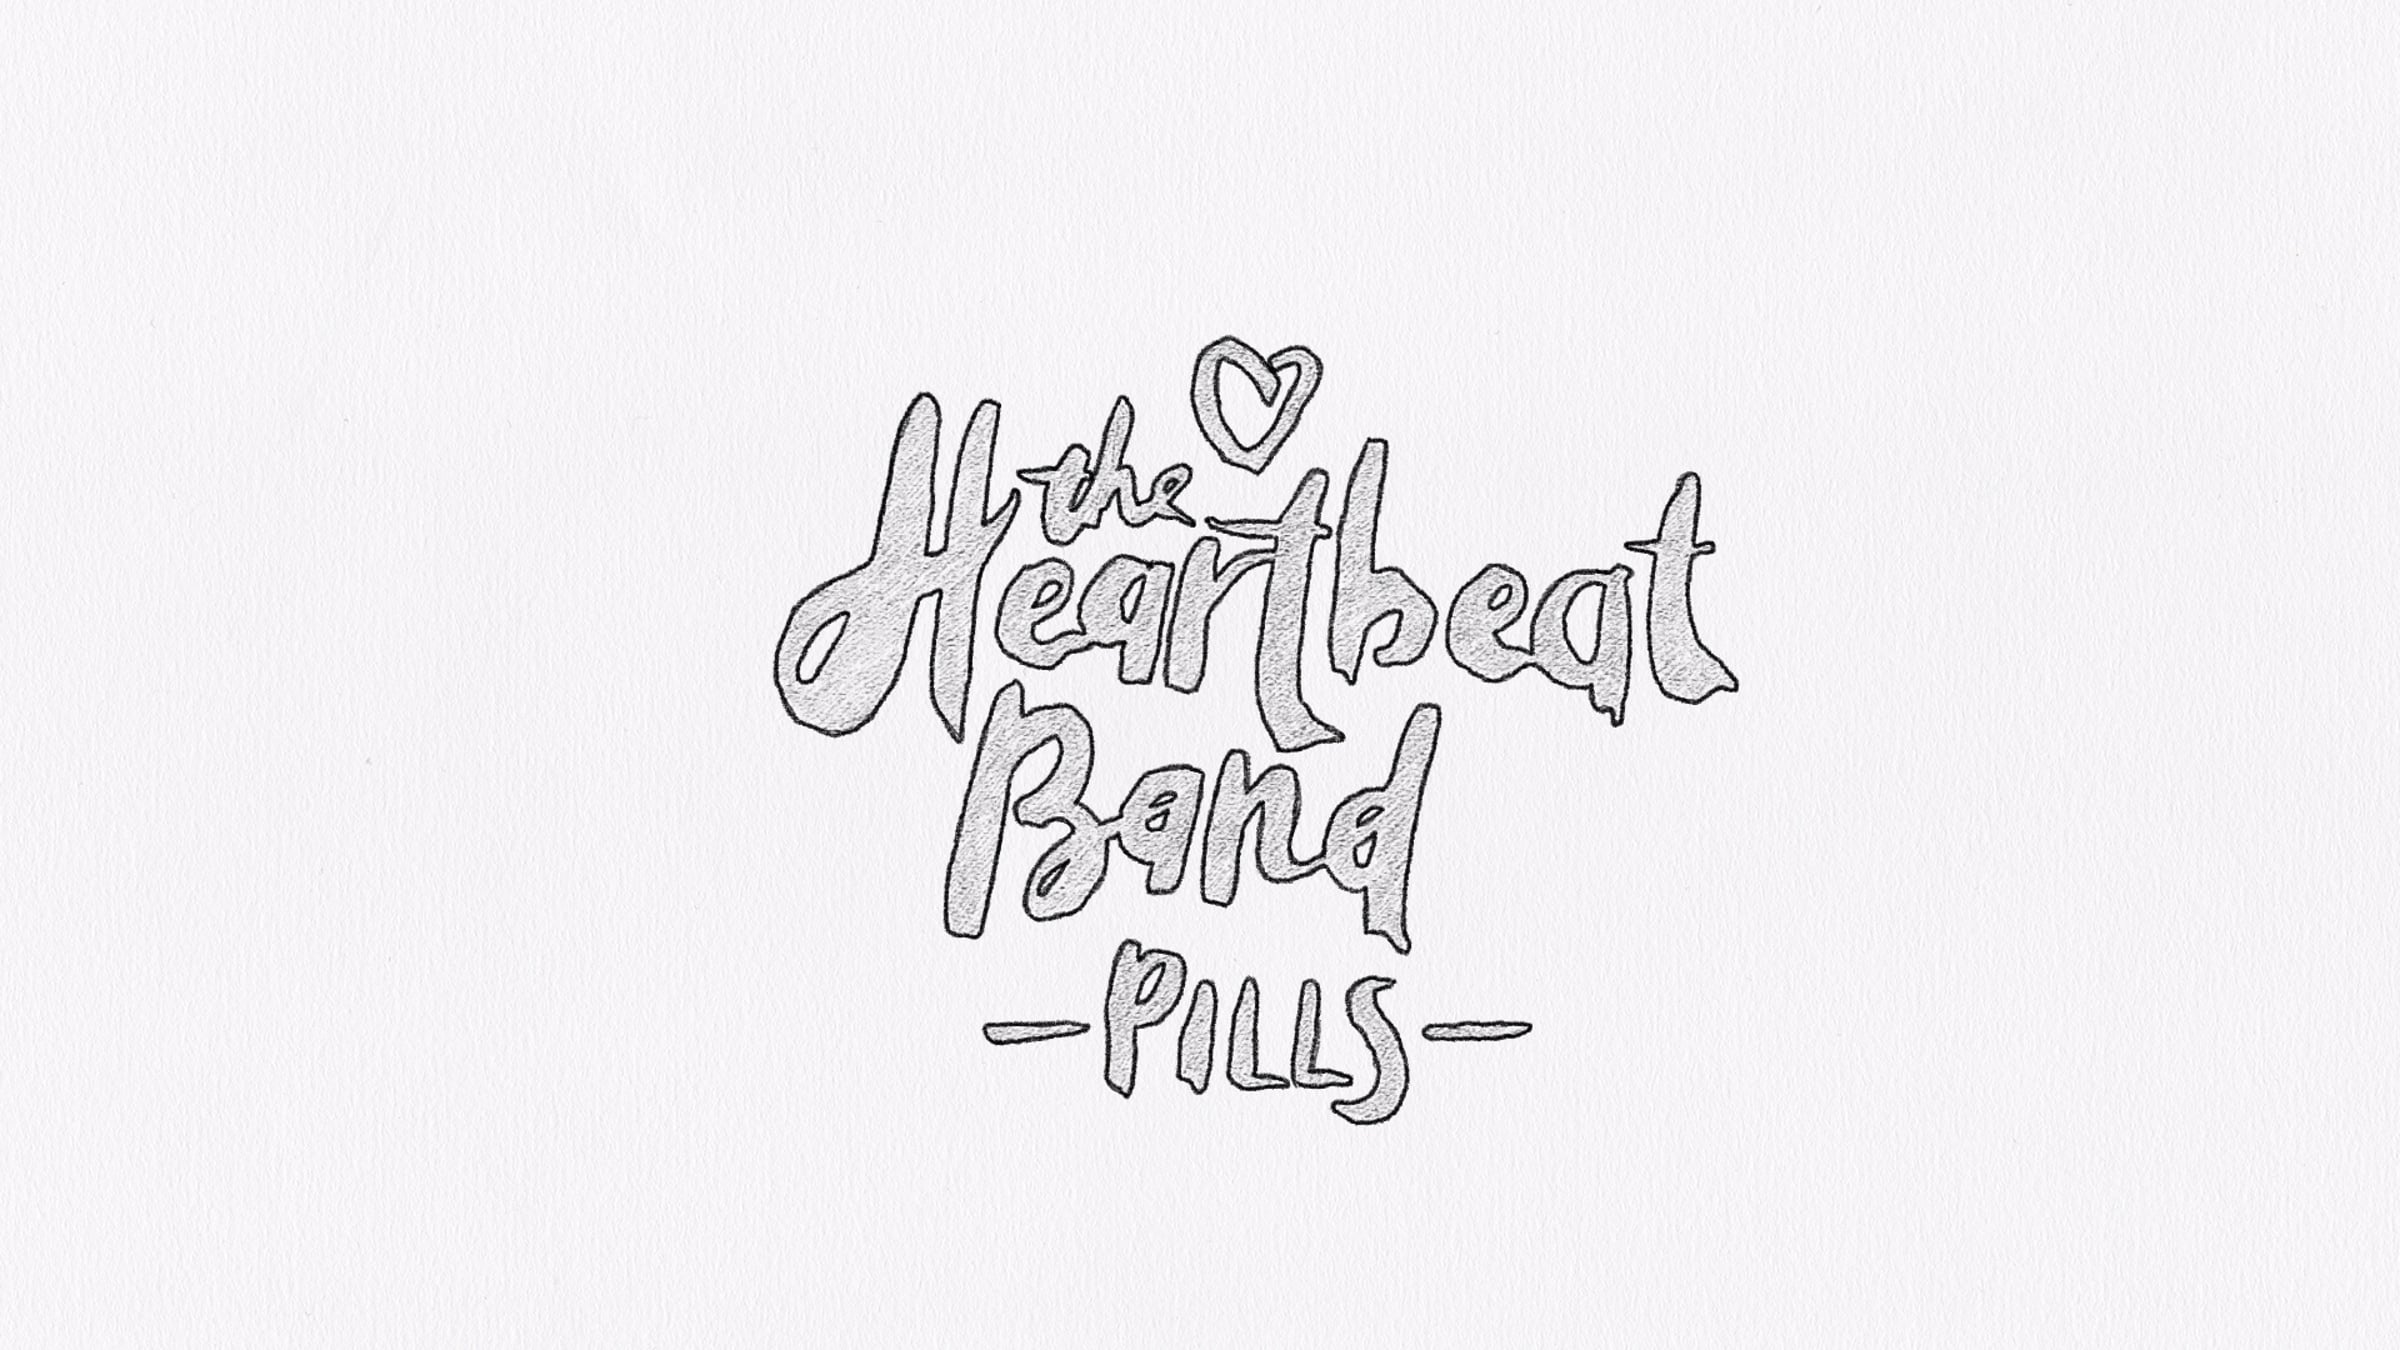 the
Heartbeat
Band
- PILLS -